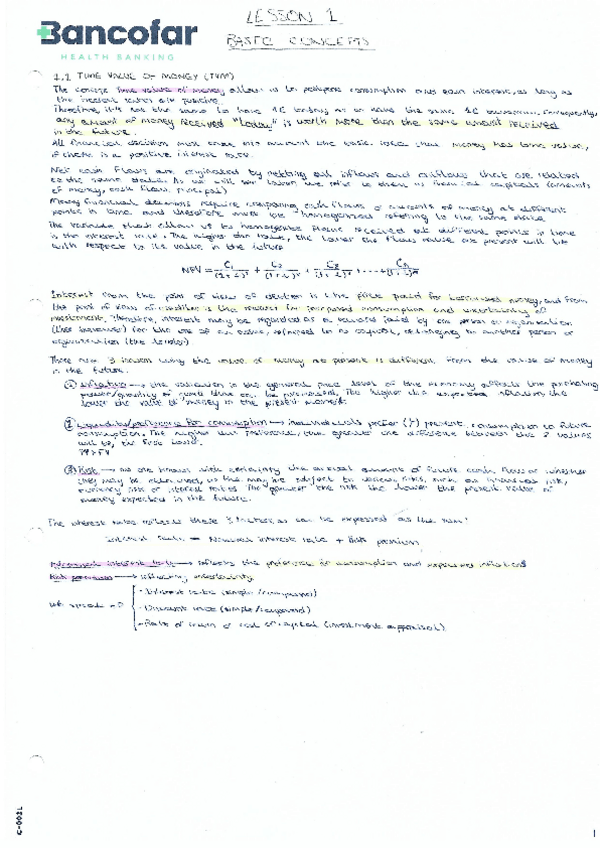 Bancofar
HEALTH BANKING
LESSON 1
BASIC CONCEPTS
1.1 TIME VALUE OF MONEY (TVM)
The concept time value of money allows us to postpone consumption and earn interests, as long as
the interest rates are positive.
Therefore, it's not the same to have 1€ today as to have the same 1€ tomorrow. Consequently,
any amount of money received "today" is worth more than the same amount received
in the future.
All financial decision must take into account the basic idea that money has time value,
if there is a positive interest rate.
Net cash flows are originated by netting out inflows and outflows that are related
to the same date. As we will see later we refer to them as financial capitals (amounts
of money, cash flow, principal)
Many financial decisions require comparing cash flows or amounts of money at different
points in time and therefore must be homogenous referring to the same date.
The variable that allows us to homogenize flows received at different points in time
is the interest rate. The higher the rates, the lower the flows value at present will be
with respect to its value in the future
NPV =
Interest from the point of view of debtor is the price paid for borrowed money, and from
the point of view of creditor is the reward for postponed consumption and uncertainty of
investment. Therefore, interest may be regarded as a reward paid by one person or organization
(the borrower) for the use of an asset, referred to as capital, belonging to another person or
organization (the lender)
There are 3 reasons why the value of money at present is different from the value of money
in the future.
Inflation → the variation in the general price level of the economy affects the purchasing
power/quantity of goods that can be purchased. The higher the expected inflation, the
lower the value of money in the present moment.
Liquidity/preference for consumption → individuals prefer present consumption to future
consumption. The higher this preference, the greater the difference between the 2 values
will be, the first
Risk → no one knows with certainty the actual amount of future cash flows or whether
they may be obtained, as they may be subject to various risks, such as financial risk,
currency risk or interest rates. The greater the risk the lower the present value of
money expected in the future.
The interest rates reflects these 3 factors, as can be expressed as the sum:
Interest rate = Nominal interest rate + Risk premium
interest rate → reflects the preference for consumption and expected inflation
Risk premium → reflecting uncertainty
- Interest rate (simple/compound)
- Discount rate (simple/compound)
- Rate of return or cost of capital (investment appraisal)
C-0031
1